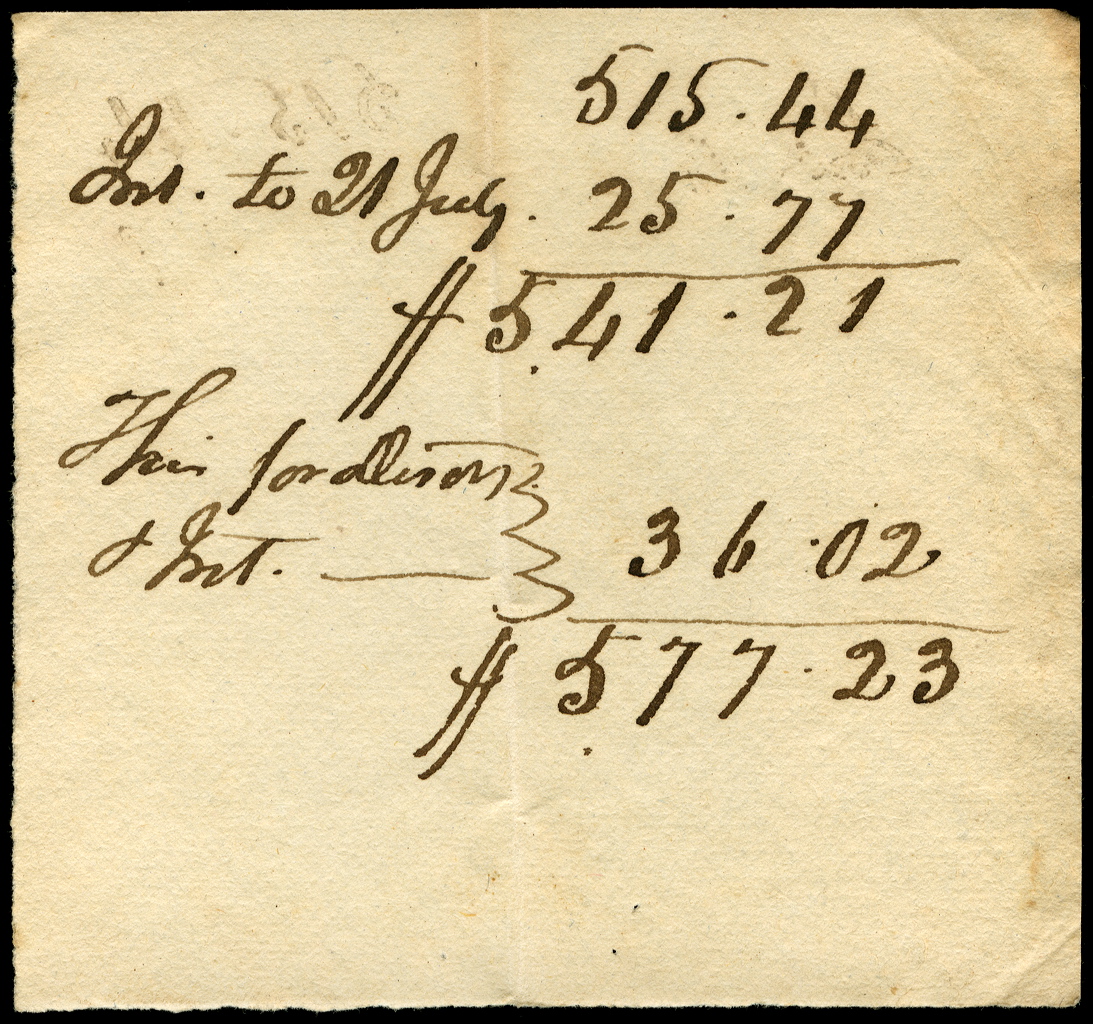 515.44
Int. to 21 July. 25.77
$ 541.21
This for
& Int. — 36.02
$ 577.23